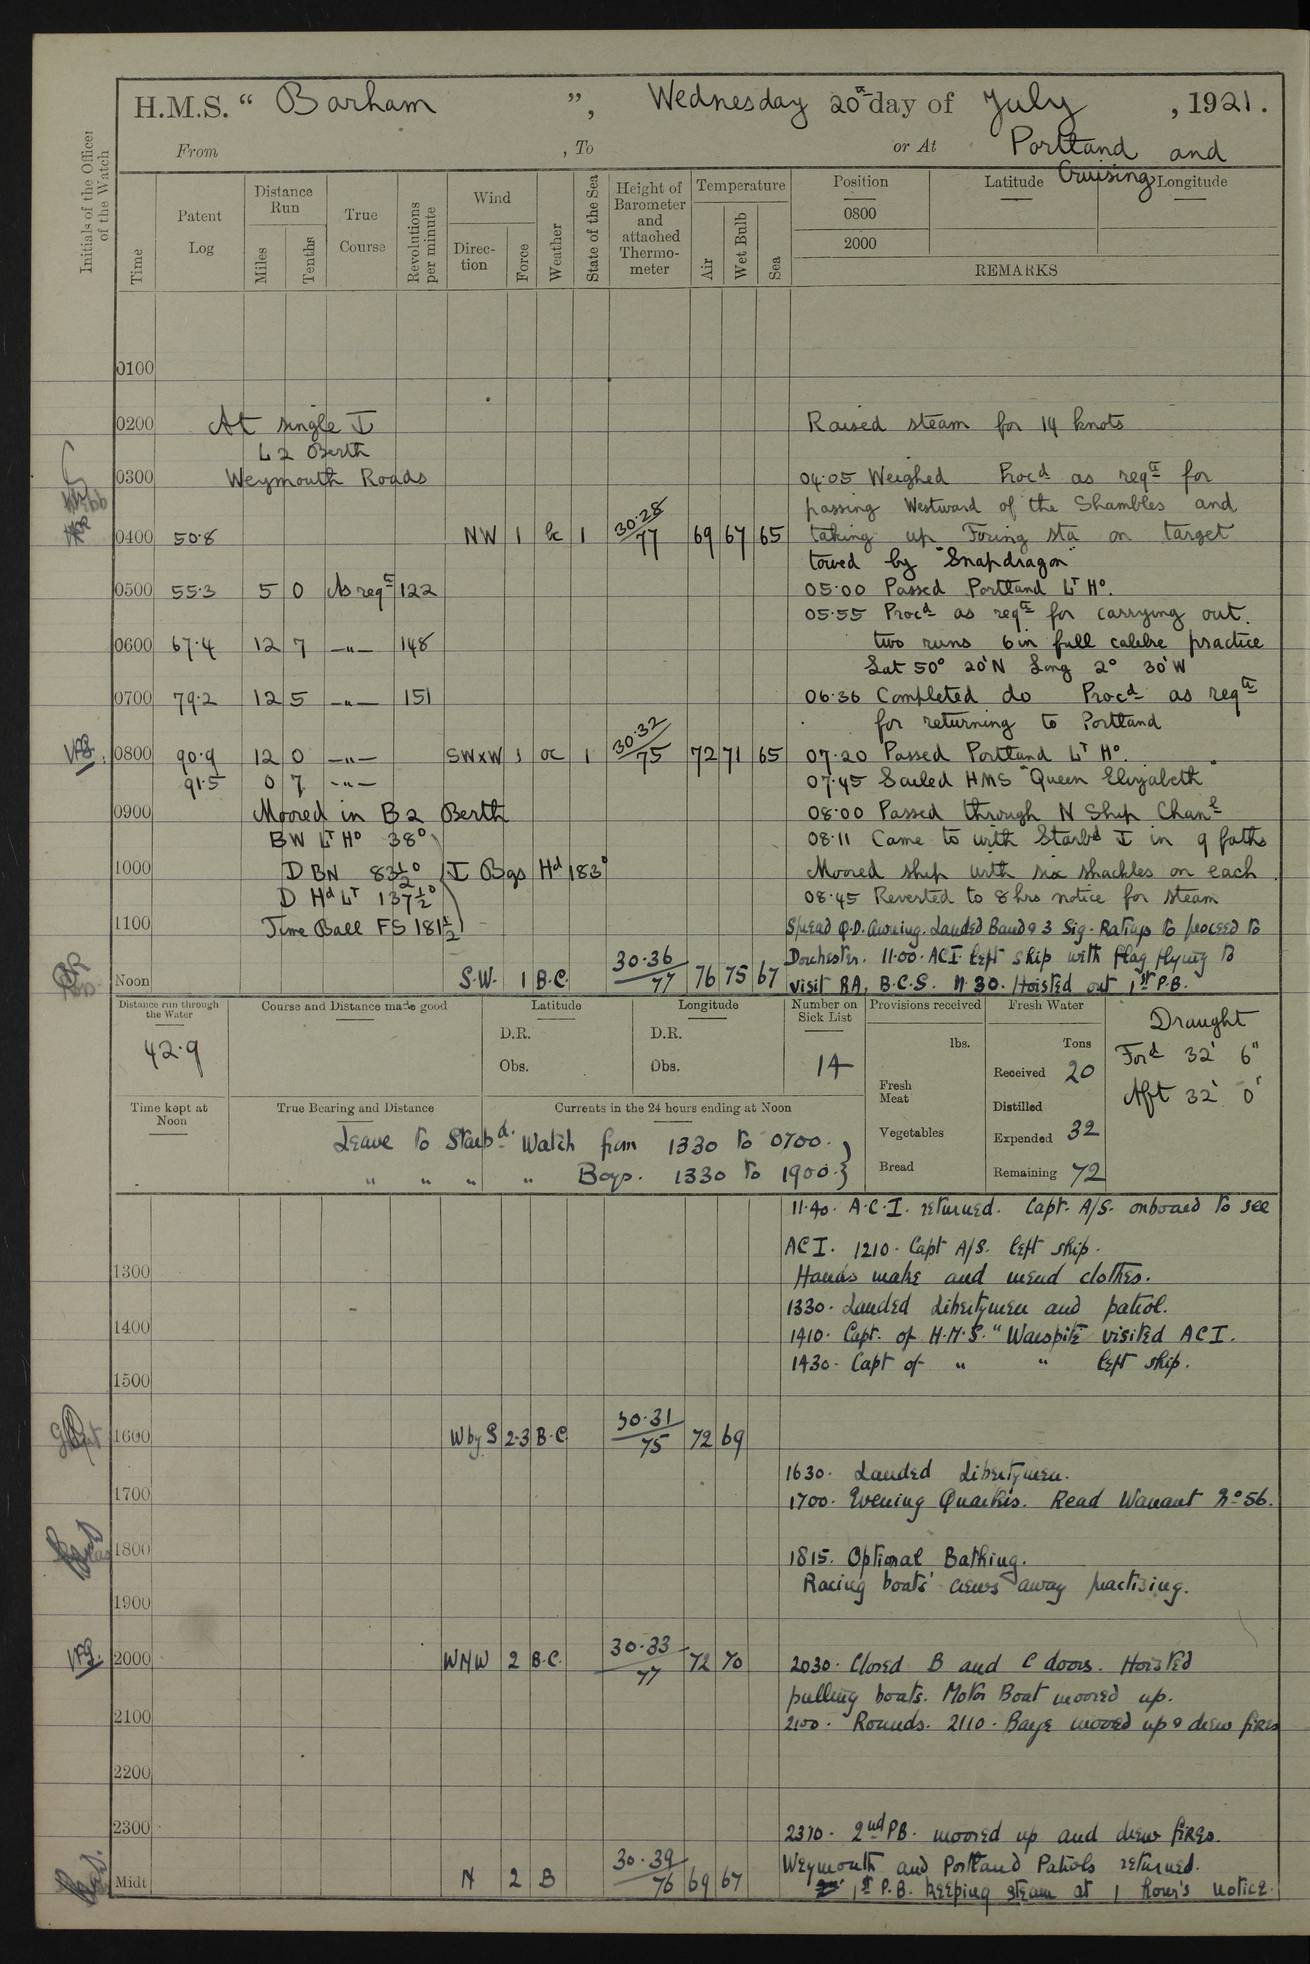 H.M.S. “ Barham ”, Wednesday 20th day of July , 1921.
From , To or At Portland and
Cruising
Initials of the Officer of the Watch
Time
Patent Log
Distance Run
Miles
Tenths
True Course
Revolutions per minute
Wind
Direc-tion
Force
Weather
State of the Sea
Height of Barometer and attached Thermo-meter
Temperature
Air
Wet Bulb
Sea
Position Latitude Longitude
0800
2000
REMARKS
0100
0200 At single I Raised steam for 14 knots
L2 Berth
0300 Weymouth Roads 04·05 Weighed Procd as reqte for
passing Westward of the Shambles and
0400 50·8 NW 1 bc 1 30·28/77 69 67 65 taking up Firing sta on target
towed by "Snapdragon"
0500 55·3 5 0 As reqte 122 05·00 Passed Portland Lt Ho.
05·55 Procd as reqte for carrying out
0600 67·4 12 7 —"— 148 two runs 6in full calibre practice
Lat 50° 20'N Long 2° 30'W
0700 79·2 12 5 —"— 151 06·36 Completed do Procd as reqte
for returning to Portland
0800 90·9 12 0 —"— SWxW 1 oc 1 30·32/75 72 71 65 07·20 Passed Portland Lt Ho.
91·5 0 7 —"— 07·45 Sailed HMS "Queen Elizabeth"
0900 Moored in B2 Berth 08·00 Passed through N Ship Chanl
BW Lt Ho 38° 08·11 Came to with Starbd I in 9 faths
1000 D BN 83½° I Bgs Hd 183° Moored ship with six shackles on each
D Hd Lt 137½° 08·45 Reverted to 8 hrs notice for steam
1100 Time Ball FS 181½ Spread Q.D. Awning. Landed Band & 3 Sig. Ratings to proceed to
Dorchester. 11·00. ACI. left ship with flag flying to
Noon S.W. 1 B.C. 30·36/77 76 75 67 visit RA, B.C.S. 11.30. Hoisted out 1st P.B.
Distance run through the Water
Course and Distance made good
Latitude
Longitude
Number on Sick List
Provisions received
Fresh Water
Draught
42·9
D.R. D.R.
lbs. Tons
Ford 32' 6"
Obs. Obs. 14
Fresh Meat
Received 20
Aft 32' 0"
Distilled
Time kept at Noon
True Bearing and Distance
Currents in the 24 hours ending at Noon
Vegetables
Expended 32
Leave to Starbd. Watch from 1330 to 0700.
" " " " Boys. 1330 to 1900.
Bread
Remaining 72
11·40. A.C.I. returned. Capt. A/S. onboard to see
ACI. 1210. Capt A/S. left ship.
1300 Hands make and mend clothes.
1330. Landed libertymen and patrol.
1400 1410. Capt. of H.M.S. "Warspite" visited ACI.
1430. Capt of " " left ship.
1500
1600 W by S 2·3 B.C. 30·31/75 72 69
1630. Landed libertymen.
1700 1700. Evening Quarters. Read Warrant No 56.
1800 1815. Optional Bathing.
Racing boats' crews away practising.
1900
2000 WNW 2 B.C. 30·33/77 72 70 2030. Closed B and C doors. Hoisted
pulling boats. Motor Boat moored up.
2100 2100. Rounds. 2110. Barge moored up & drew fires
2200
2300 2310. 2nd PB. moored up and drew fires.
Weymouth and Portland Patrols returned.
Midt N 2 B 30·39/76 69 67 1st P.B. keeping steam at 1 hour's notice.